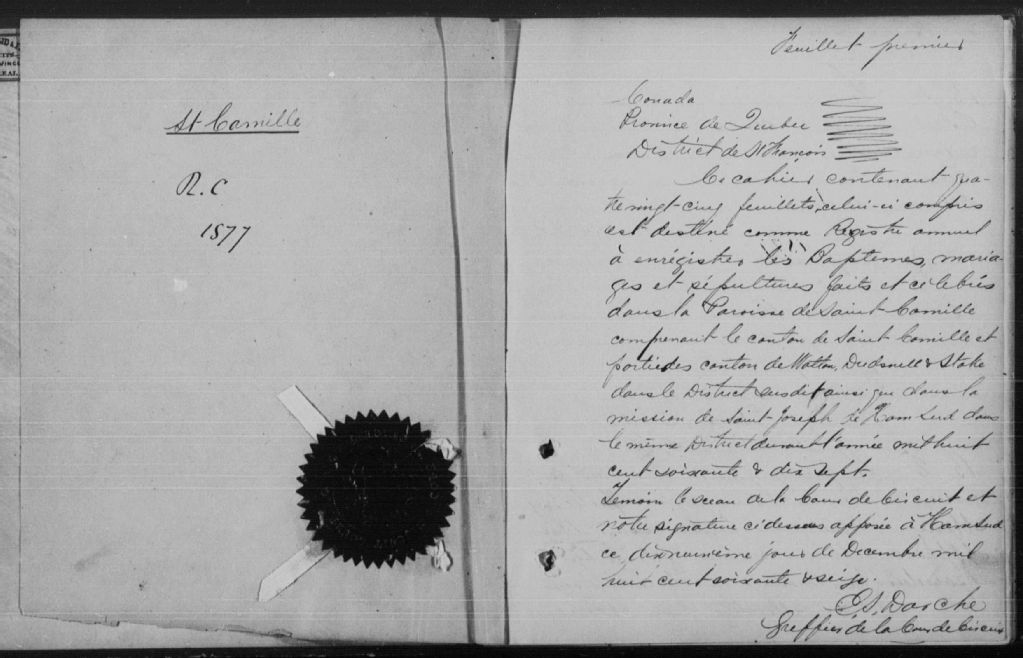 St Camille
R.C
1877
Feuillet premier
Canada
Province de Quebec
District de St François
Ce cahier contenant qua-
tre vingt-cinq feuillets, celui-ci compris
est destiné comme Régistre annuel
à enrégistrer les Baptemes, maria-
ges et sépultures faits et célebrés
dans la Paroisse de Saint Camille
comprenant le canton de Saint Camille et
partie des canton de Wotton, Dudswell & Stoke
dans le District susdit ainsi que dans la
mission de Saint Joseph de Ham Sud dans
le même District durant l'année mil huit
cent soixante & dix sept.
Temoin le sceau de la Cour de Circuit et
notre signature ci dessous apposée à Ham Sud
ce dixneuvième jour de Decembre mil
huit cent soixante & seize.
Darche
Greffier de la Cour de Circuit